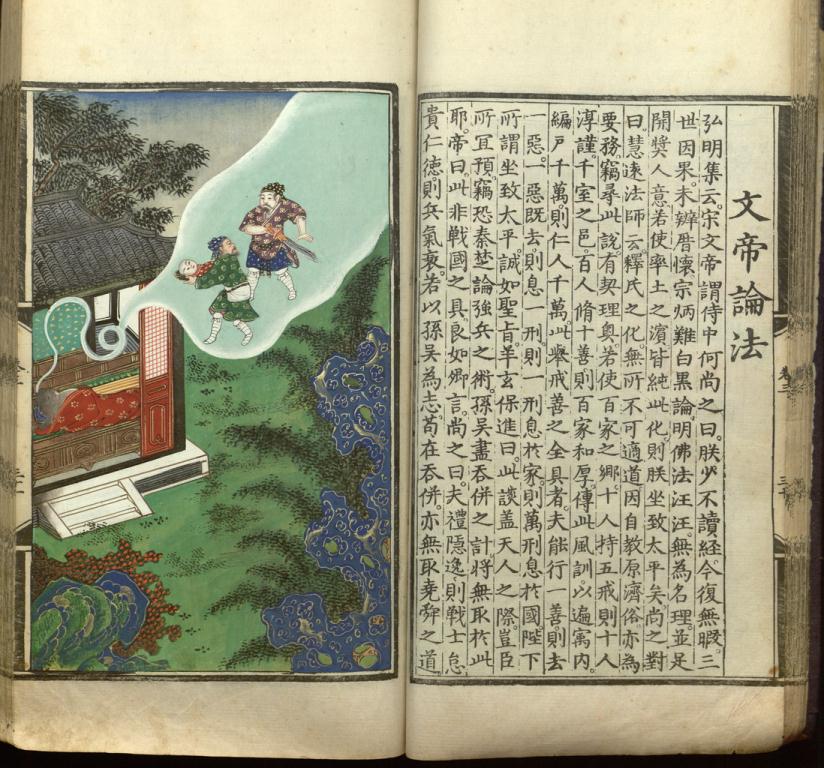 文帝論法
弘明集云。宋文帝謂侍中何尚之曰。朕少不讀經。今復無暇。三
世因果。未辯厝懷。宗炳難白黑論。明佛法汪汪。無為名理並足
開獎人意。若使率土之濱。皆純此化。則朕坐致太平矣。尚之對
曰。慧遠法師云。釋氏之化。無所不可。適道因自教原。濟俗亦為
要務。竊尋此說。有契理奧。若使百家之鄉。十人持五戒。則十人
淳謹。千室之邑。百人脩十善。則百家和厚。傳此風訓。以遍寓內。
編戶千萬。則仁人千萬。此舉戒善之全具者。夫能行一善。則去
一惡。一惡既去。則息一刑。一刑息於家。則萬刑息於國。陛下
所謂坐致太平。誠如聖旨。羊玄保進曰。此談蓋天人之際。豈臣
所宜預。竊恐秦楚論強兵之術。孫吳盡吞併之計。將無取於此
耶。帝曰。此非戰國之具。良如卿言。尚之曰。夫禮隱逸。則戰士怠
貴仁德。則兵氣衰。若以孫吳為志。苟在吞併。亦無取堯舜之道